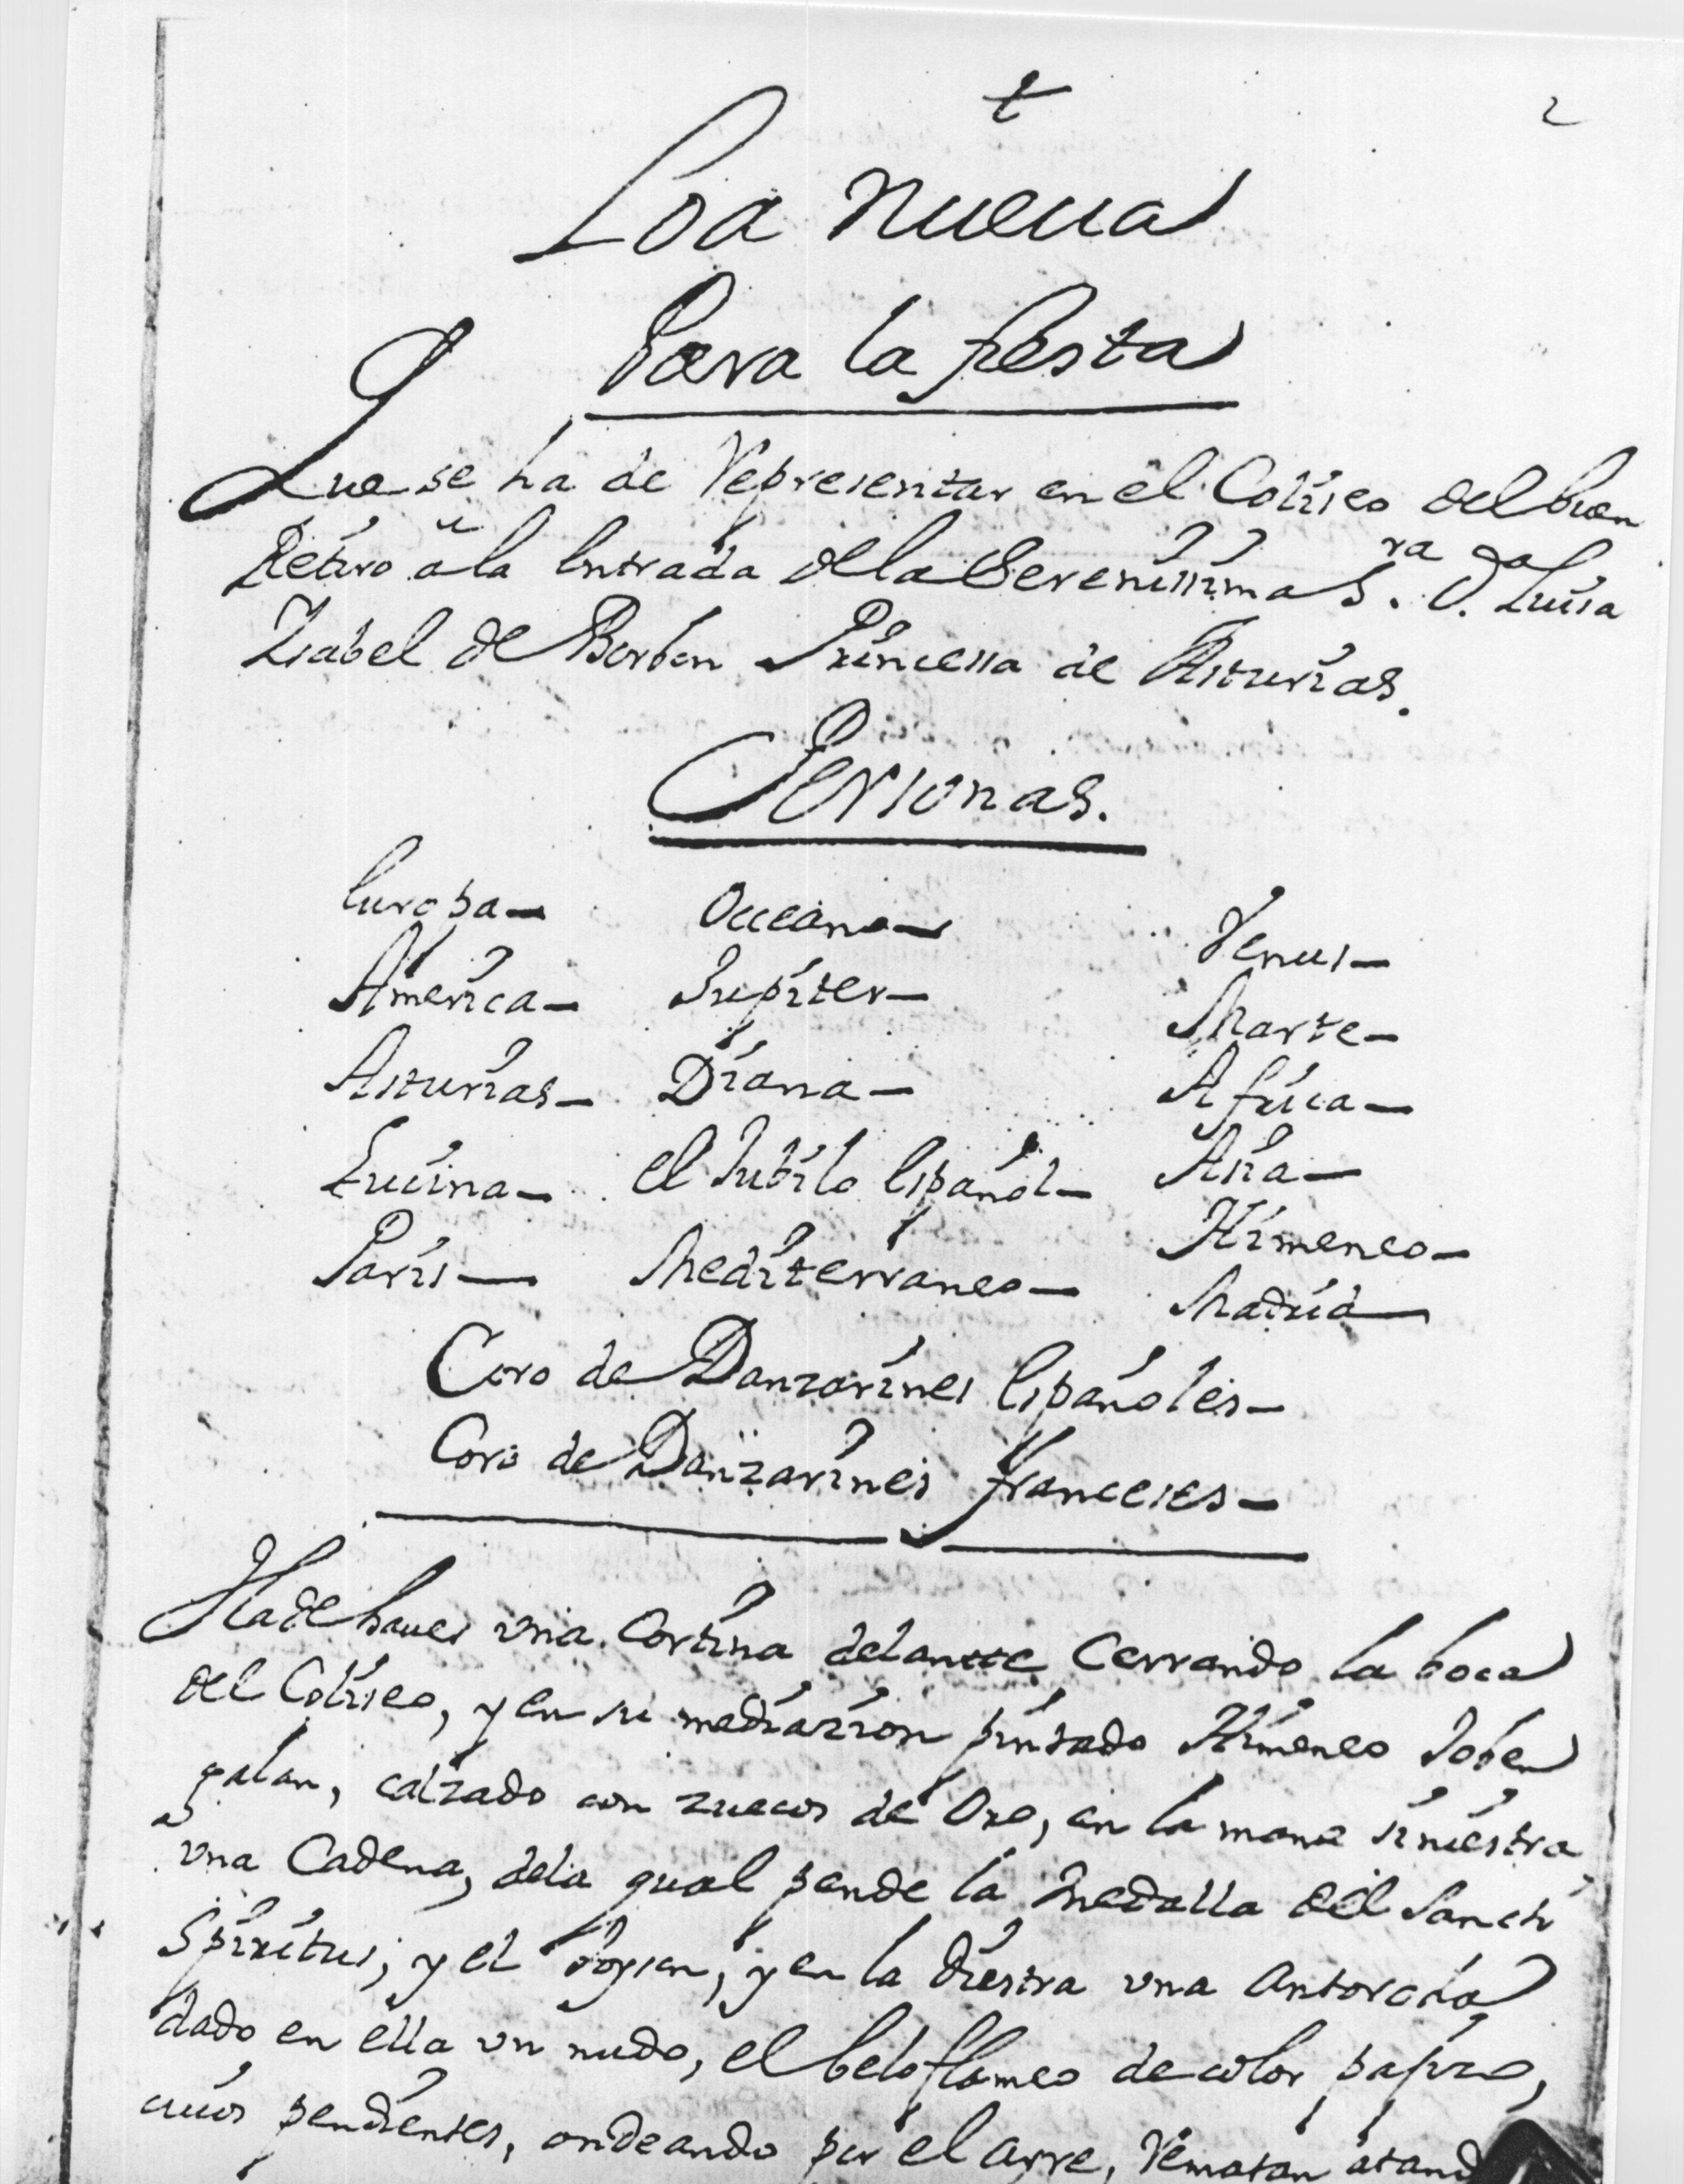 †
2
Loa nueua
Para la fiesta
Que se ha de Representar en el Coliseo del buen
Retiro a la entrada de la Serenissima S.ra D.a Luisa
Isabel de Borbon Princessa de Asturias.
Personas.
Europa— Occeano— Venus—
America— Jupiter— Marte—
Asturias— Diana— Africa—
Lucina— el Jubilo español— Asia—
Paris— Mediterraneo— Himeneo—
Madrid—
Coro de Danzarines españoles—
Coro de Danzarines franceses—
Ha de hauer vna Cortina delantte Cerrando la boca
del Coliseo, y en su mediazion pintado Himeneo Joben
galan, calzado con zuecos de Oro, en la mano siniestra
vna Cadena, dela qual pende la Medalla del Sancti
Spiritus, y el toyson, y en la diestra vna antorcha
dado en ella vn nudo, el belo flameo de color pajizo,
cuios pendientes, ondeando por el ayre, Rematan atand